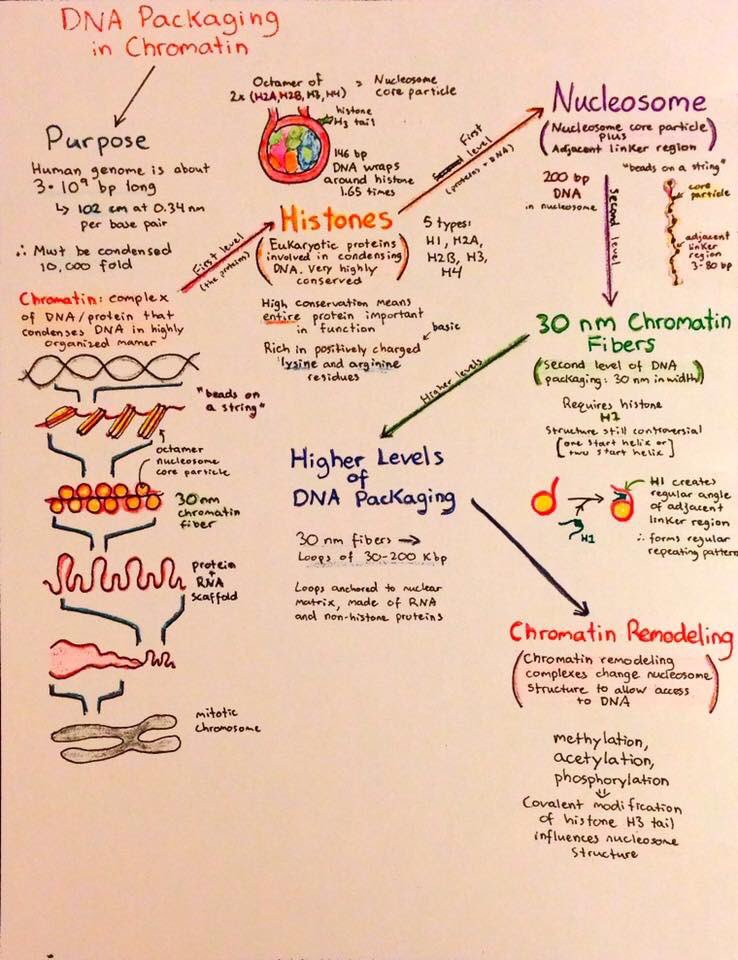 DNA Packaging
in Chromatin
Purpose
Human genome is about
3·10⁹ bp long
↳ 102 cm at 0.34 nm
per base pair
∴ Must be condensed
10,000 fold
Chromatin: complex
of DNA/protein that
condenses DNA in highly
organized manner
"beads on
a string"
octamer
nucleosome
core particle
30 nm
chromatin
fiber
protein +
RNA
scaffold
mitotic
chromosome
First level
(the proteins)
Octamer of
2x (H2A, H2B, H3, H4)
= Nucleosome
core particle
histone
H3 tail
146 bp
DNA wraps
around histone
1.65 times
Histones
(Eukaryotic proteins
involved in condensing
DNA. Very highly
conserved)
5 types:
H1, H2A,
H2B, H3,
H4
High conservation means
entire protein important
in function
basic
Rich in positively charged
lysine and arginine
residues
First level
(proteins + DNA)
Nucleosome
(Nucleosome core particle
plus
Adjacent linker region)
200 bp
DNA
in nucleosome
"beads on a string"
core
particle
adjacent
linker
region
3-80 bp
Second level
30 nm Chromatin
Fibers
(Second level of DNA
packaging: 30 nm in width)
Requires histone
Structure still controversial
[one start helix or]
two start helix]
H1
H1 creates
regular angle
of adjacent
linker region
∴ forms regular
repeating pattern
Higher levels
Higher Levels
of
DNA Packaging
30 nm fibers →
Loops of 30-200 Kbp
Loops anchored to nuclear
matrix, made of RNA
and non-histone proteins
Chromatin Remodeling
(Chromatin remodeling
complexes change nucleosome
structure to allow access
to DNA)
methylation,
acetylation,
phosphorylation
⇓
Covalent modification
of histone H3 tail
influences nucleosome
structure